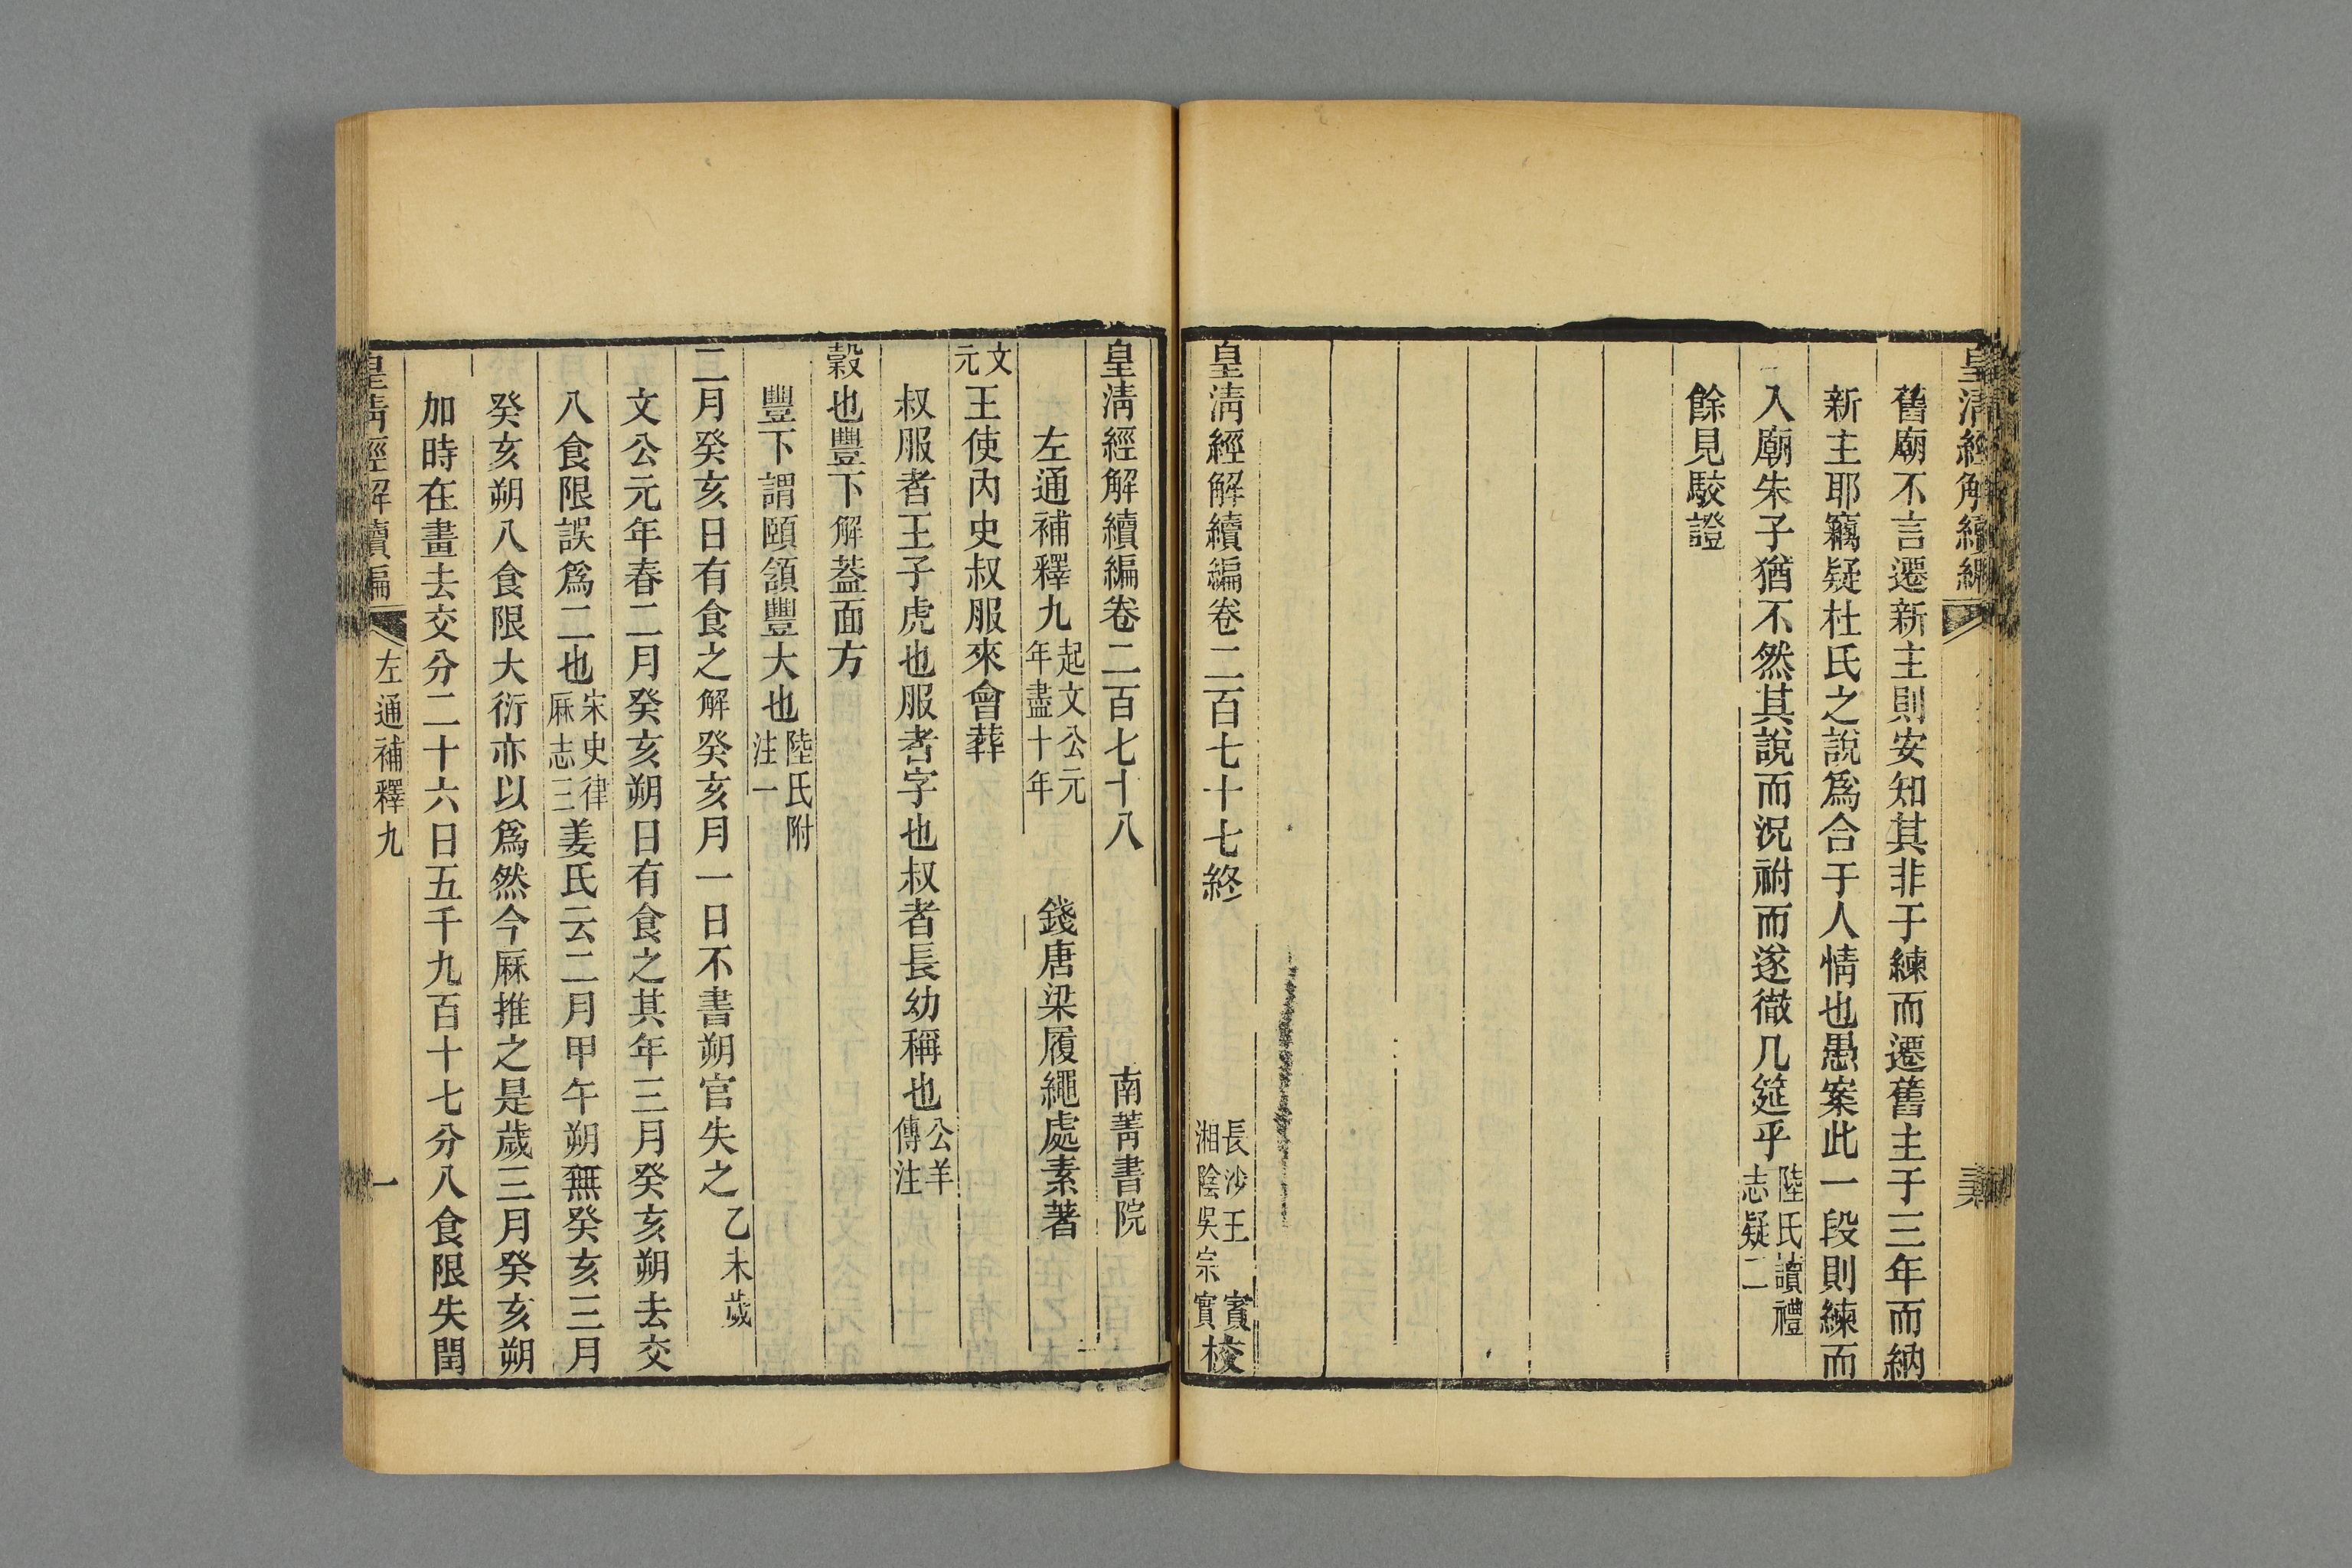 皇清經解續編
舊廟不言遷新主則安知其非于練而遷舊主于三年而納
新主耶竊疑杜氏之說爲合于人情也愚案此一段則練而
入廟朱子猶不然其說而況祔而遂徹几筵乎陸氏讀禮志疑二
餘見駁證
皇清經解續編卷二百七十七終
長沙王賓
湘陰吳宗實校
皇清經解續編卷二百七十八 南菁書院
左通補釋九起文公元年盡十年 錢唐梁履繩處素著
文元王使內史叔服來會葬
叔服者王子虎也服者字也叔者長幼稱也公羊傳注
穀也豐下解蓋面方
豐下謂頤頷豐大也陸氏附注一
二月癸亥日有食之解癸亥月一日不書朔官失之 乙未歲
文公元年春二月癸亥朔日有食之其年三月癸亥朔去交
八食限誤爲二也宋史律厤志三姜氏云二月甲午朔無癸亥三月
癸亥朔八食限大衍亦以爲然今厤推之是歲三月癸亥朔
加時在晝去交分二十六日五千九百十七分八食限失閏
皇清經解續編
左通補釋九
一